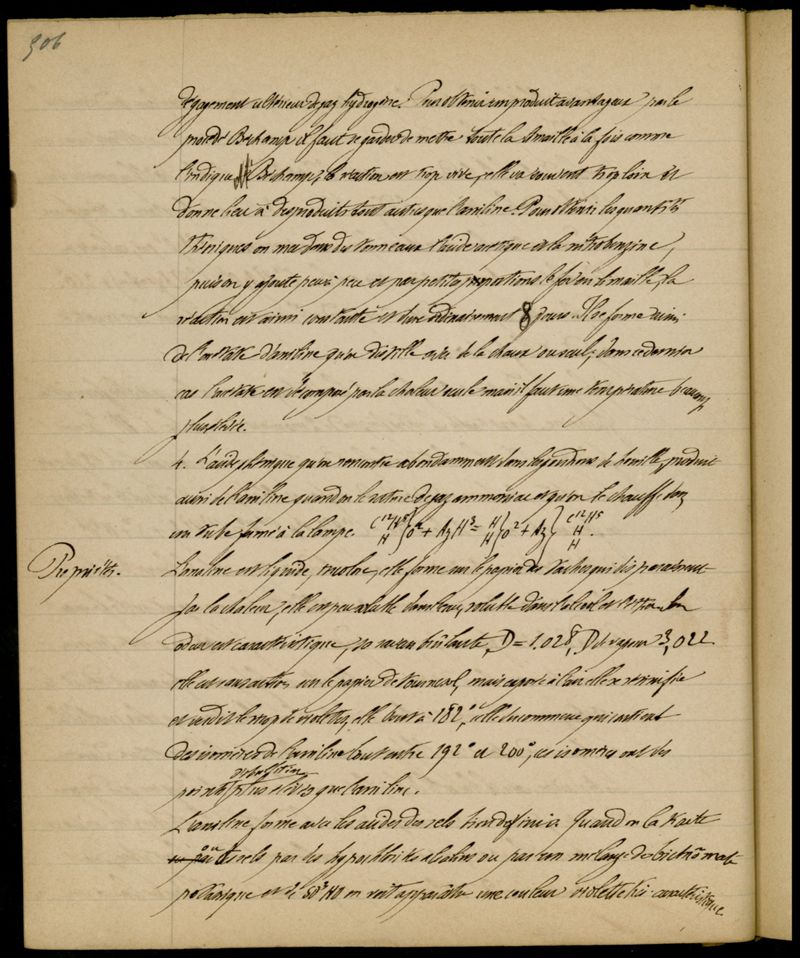 306
dégagement ultérieur de gaz hydrogène. Pour obtenir un produit avantageux par le
procédé Béchamp il faut se garder de mettre toute la limaille à la fois comme
l'indique Mr Béchamp; la réaction est trop vive, elle va souvent trop loin et
donne lieu à des produits tout autres que l'aniline. Pour obtenir les quantités
théoriques on met dans des tonneaux l'acide acétique et la nitrobenzine,
puis on y ajoute peu à peu et par petites proportions le fer en limaille, la
réaction est ainsi constante et dure ordinairement 8 jours. Il se forme ainsi
de l'acétate d'aniline qu'on distille avec de la chaux ou seul; dans ce dernier
cas l'acétate est décomposé par la chaleur seule mais il faut une température beaucoup
plus élevée.
4. L'acide phénique qu'on rencontre abondamment dans les goudrons de houille, produit
aussi de l'aniline quand on le sature de gaz ammoniac et qu'on le chauffe dans
un tube fermé à la lampe. C12H5 / H } O2 + AzH3 = H / H } O2 + Az { C12H5 / H / H .
Propriétés.
L'aniline est liquide, incolore, elle forme sur le papier des taches qui disparaissent
par la chaleur; elle est peu soluble dans l'eau, soluble dans l'alcool et l'éther. Son
odeur est caractéristique, sa saveur brûlante, D = 1.028, D de vapeur 3,022
elle est sans action sur le papier de tournesol, mais exposée à l'air elle se résinifie
et verdit le sirop de violettes, elle bout à 182°, celle du commerce qui contient
des isomères de l'aniline bout entre 192° et 200°, ces isomères ont des
points d'ébullition plus élevés que l'aniline.
L'aniline forme avec les acides des sels bien définis. Quand on la traite
ou ses sels par des hypochlorites alcalins ou par un mélange de bichromate
potassique et de SO3HO on voit apparaître une couleur violette très caractéristique